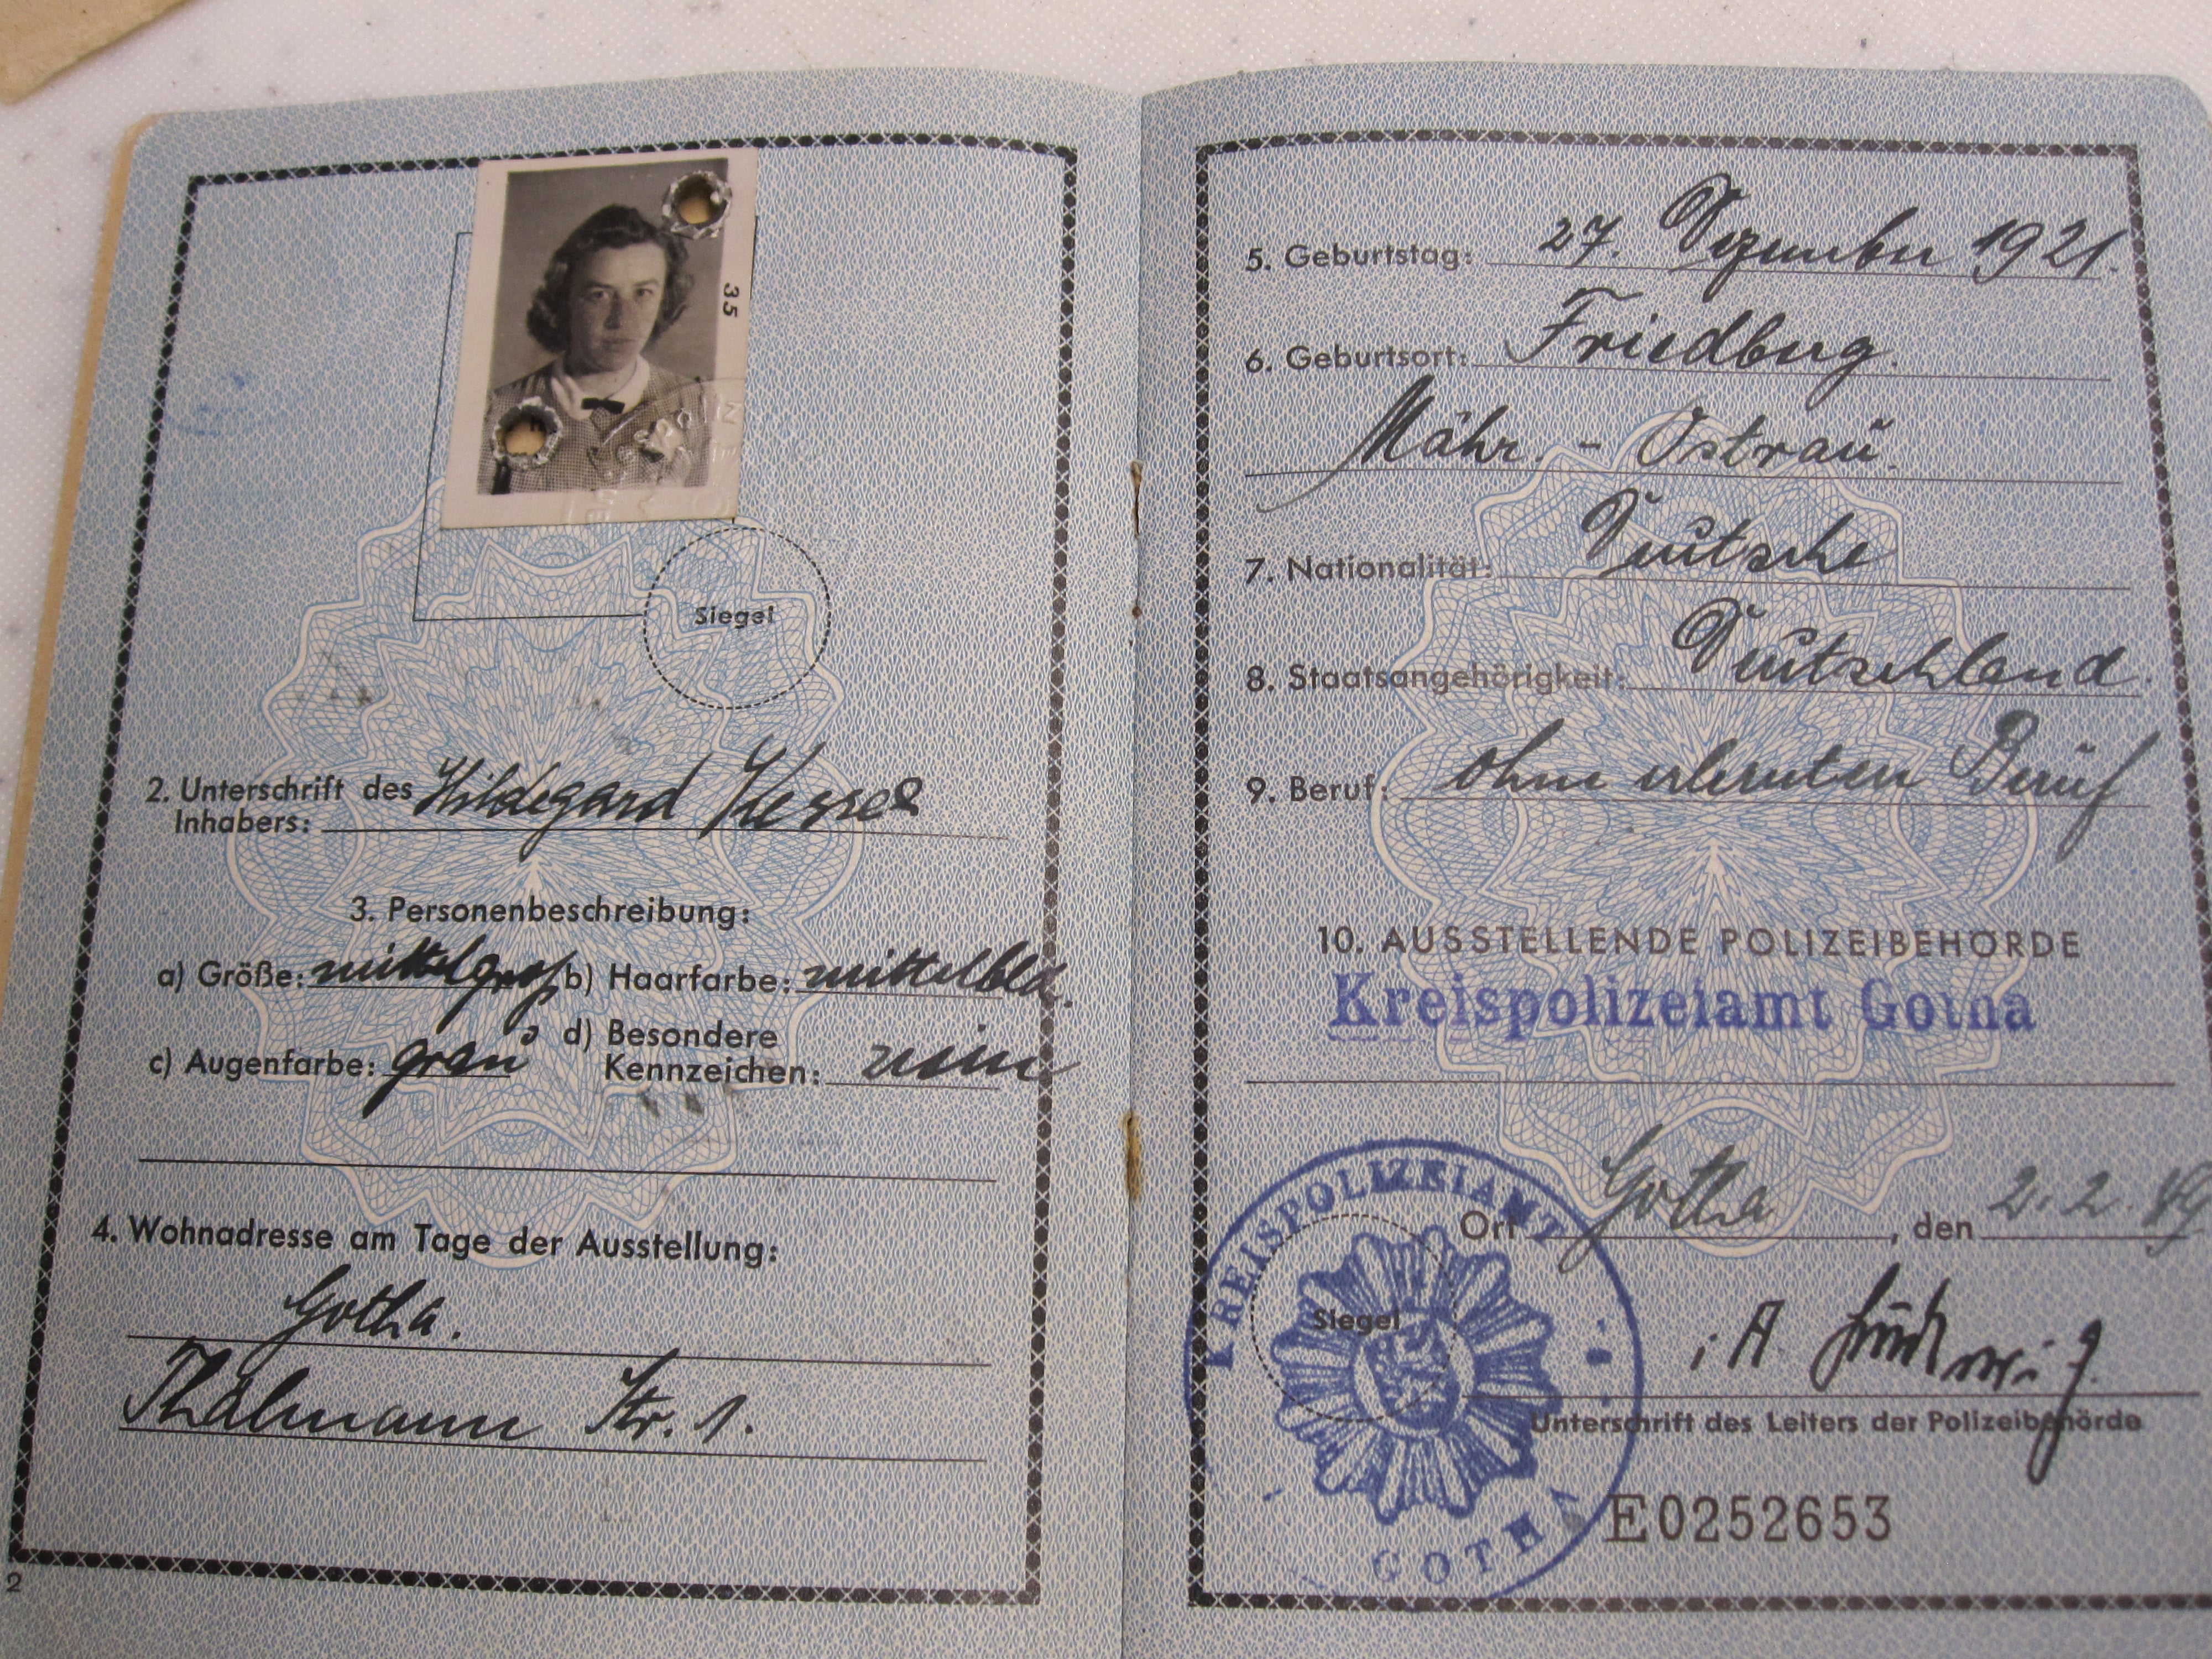 35
Siegel
2. Unterschrift des Hildegard Kessel
Inhabers:
3. Personenbeschreibung:
a) Größe: mittelgroß b) Haarfarbe: mittelbld.
c) Augenfarbe: grau d) Besondere
Kennzeichen:
4. Wohnadresse am Tage der Ausstellung:
Gotha.
Thälmann Str. 1.
2
5. Geburtstag: 27. Dezember 1921.
6. Geburtsort: Friedberg.
Mähr. - Ostrau.
7. Nationalität: Deutsche
8. Staatsangehörigkeit: Deutschland.
9. Beruf: ohne erlernten Beruf
10. AUSSTELLENDE POLIZEIBEHÖRDE
Kreispolizeiamt Gotha
KREISPOLIZEIAMT
Ort Gotha, den 2.2.49
Siegel
i.A. Ludwig
Unterschrift des Leiters der Polizeibehörde
GOTHA
E0252653